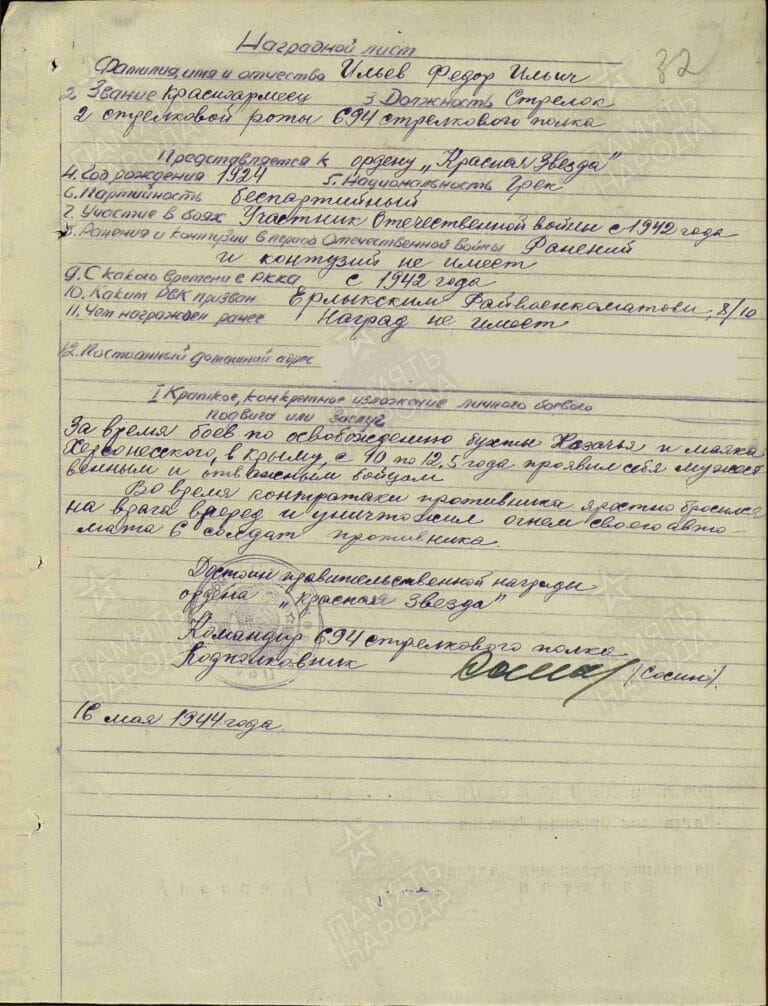 Наградной лист
32
Фамилия, имя и отчество Ильев Федор Ильич
2 Звание красноармеец 3 Должность Стрелок
2 стрелковой роты 694 стрелкового полка
Представляется к ордену „Красная Звезда"
4. Год рождения 1924 5. Национальность Грек
6. Партийность беспартийный
7. Участие в боях Участник Отечественной войны с 1942 года
8. Ранения и контузии в период Отечественной войны Ранений
и контузий не имеет
9. С какого времени в РККА с 1942 года
10. Каким РВК призван Райвоенкоматом, 8/10
11. Чем награжден ранее Наград не имеет
12. Постоянный домашний адрес
I Краткое, конкретное изложение личного боевого
подвига или заслуг
За время боев по освобождению бухты Казачья и маяка
Херсонесского, в Крыму, с 10 по 12,5 года проявил себя мужест
венным и отважным бойцом
Во время контратаки противника яростно бросился
на врага вперед и уничтожил огнем своего авто
мата 6 солдат противника.
Достоин правительственной награды
ордена „Красная Звезда"
Командир 694 стрелкового полка
Подполковник
16 мая 1944 года.
ПАМЯТЬ НАРОДА